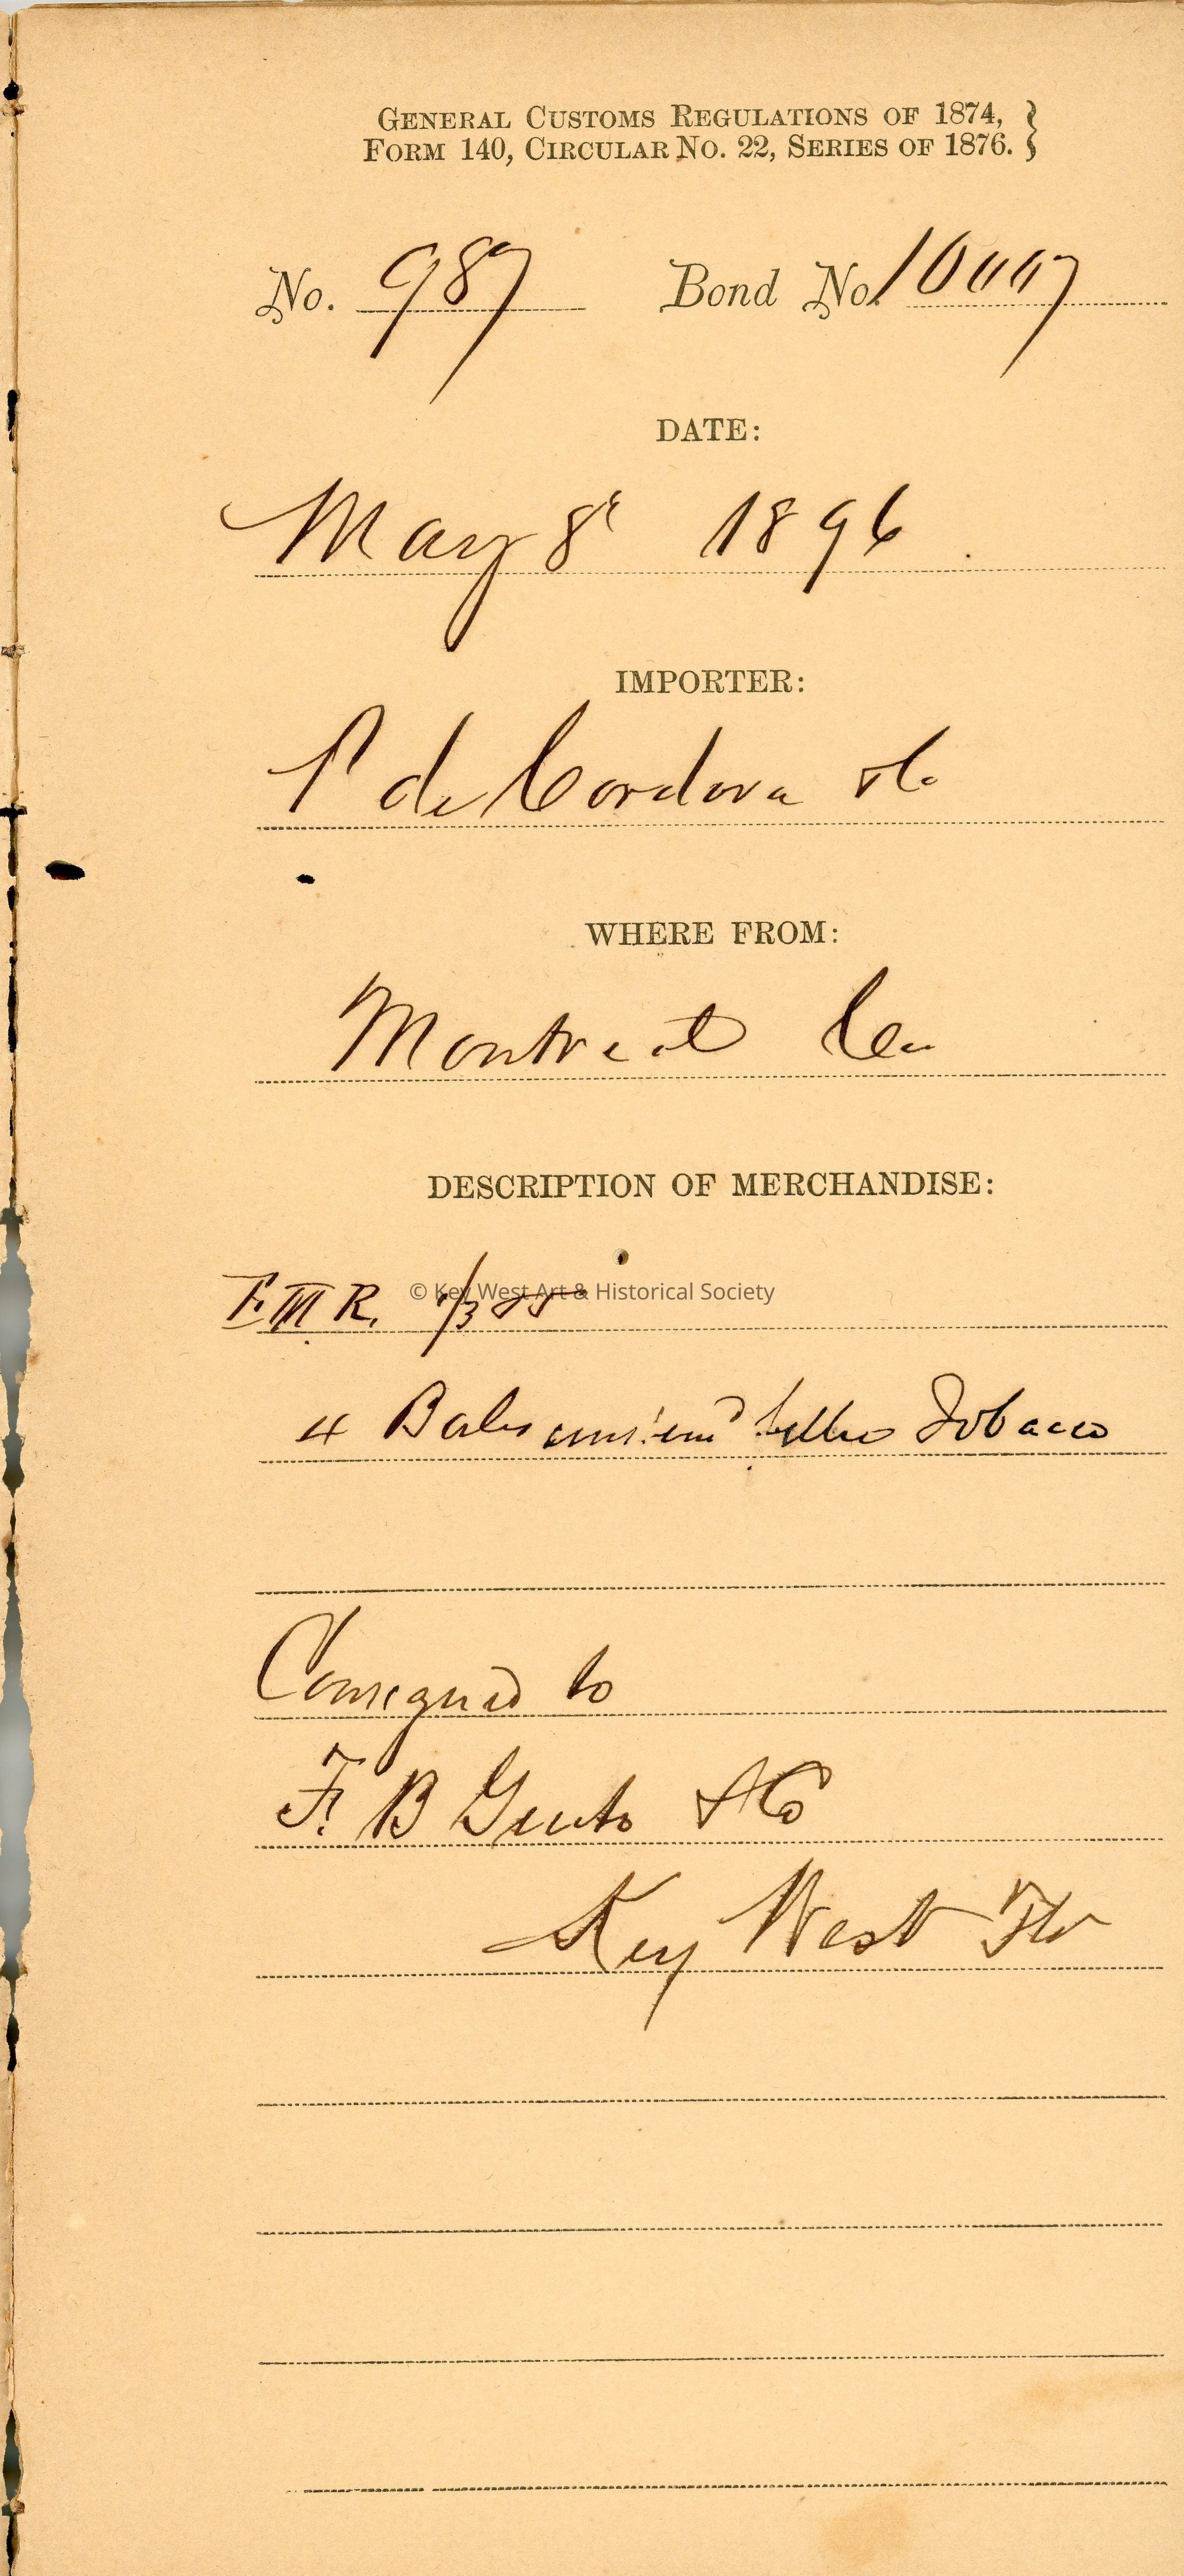 GENERAL CUSTOMS REGULATIONS OF 1874,
FORM 140, CIRCULAR No. 22, SERIES OF 1876.
No. 987 Bond No.
DATE:
May 8 1896
IMPORTER:
P de Cordova & Co
WHERE FROM:
Montreal Ca
DESCRIPTION OF MERCHANDISE:
F.M R.
© Key West Art & Historical Society
4 Bales Tobacco
Consigned to
F. B & Co
Key West Fla